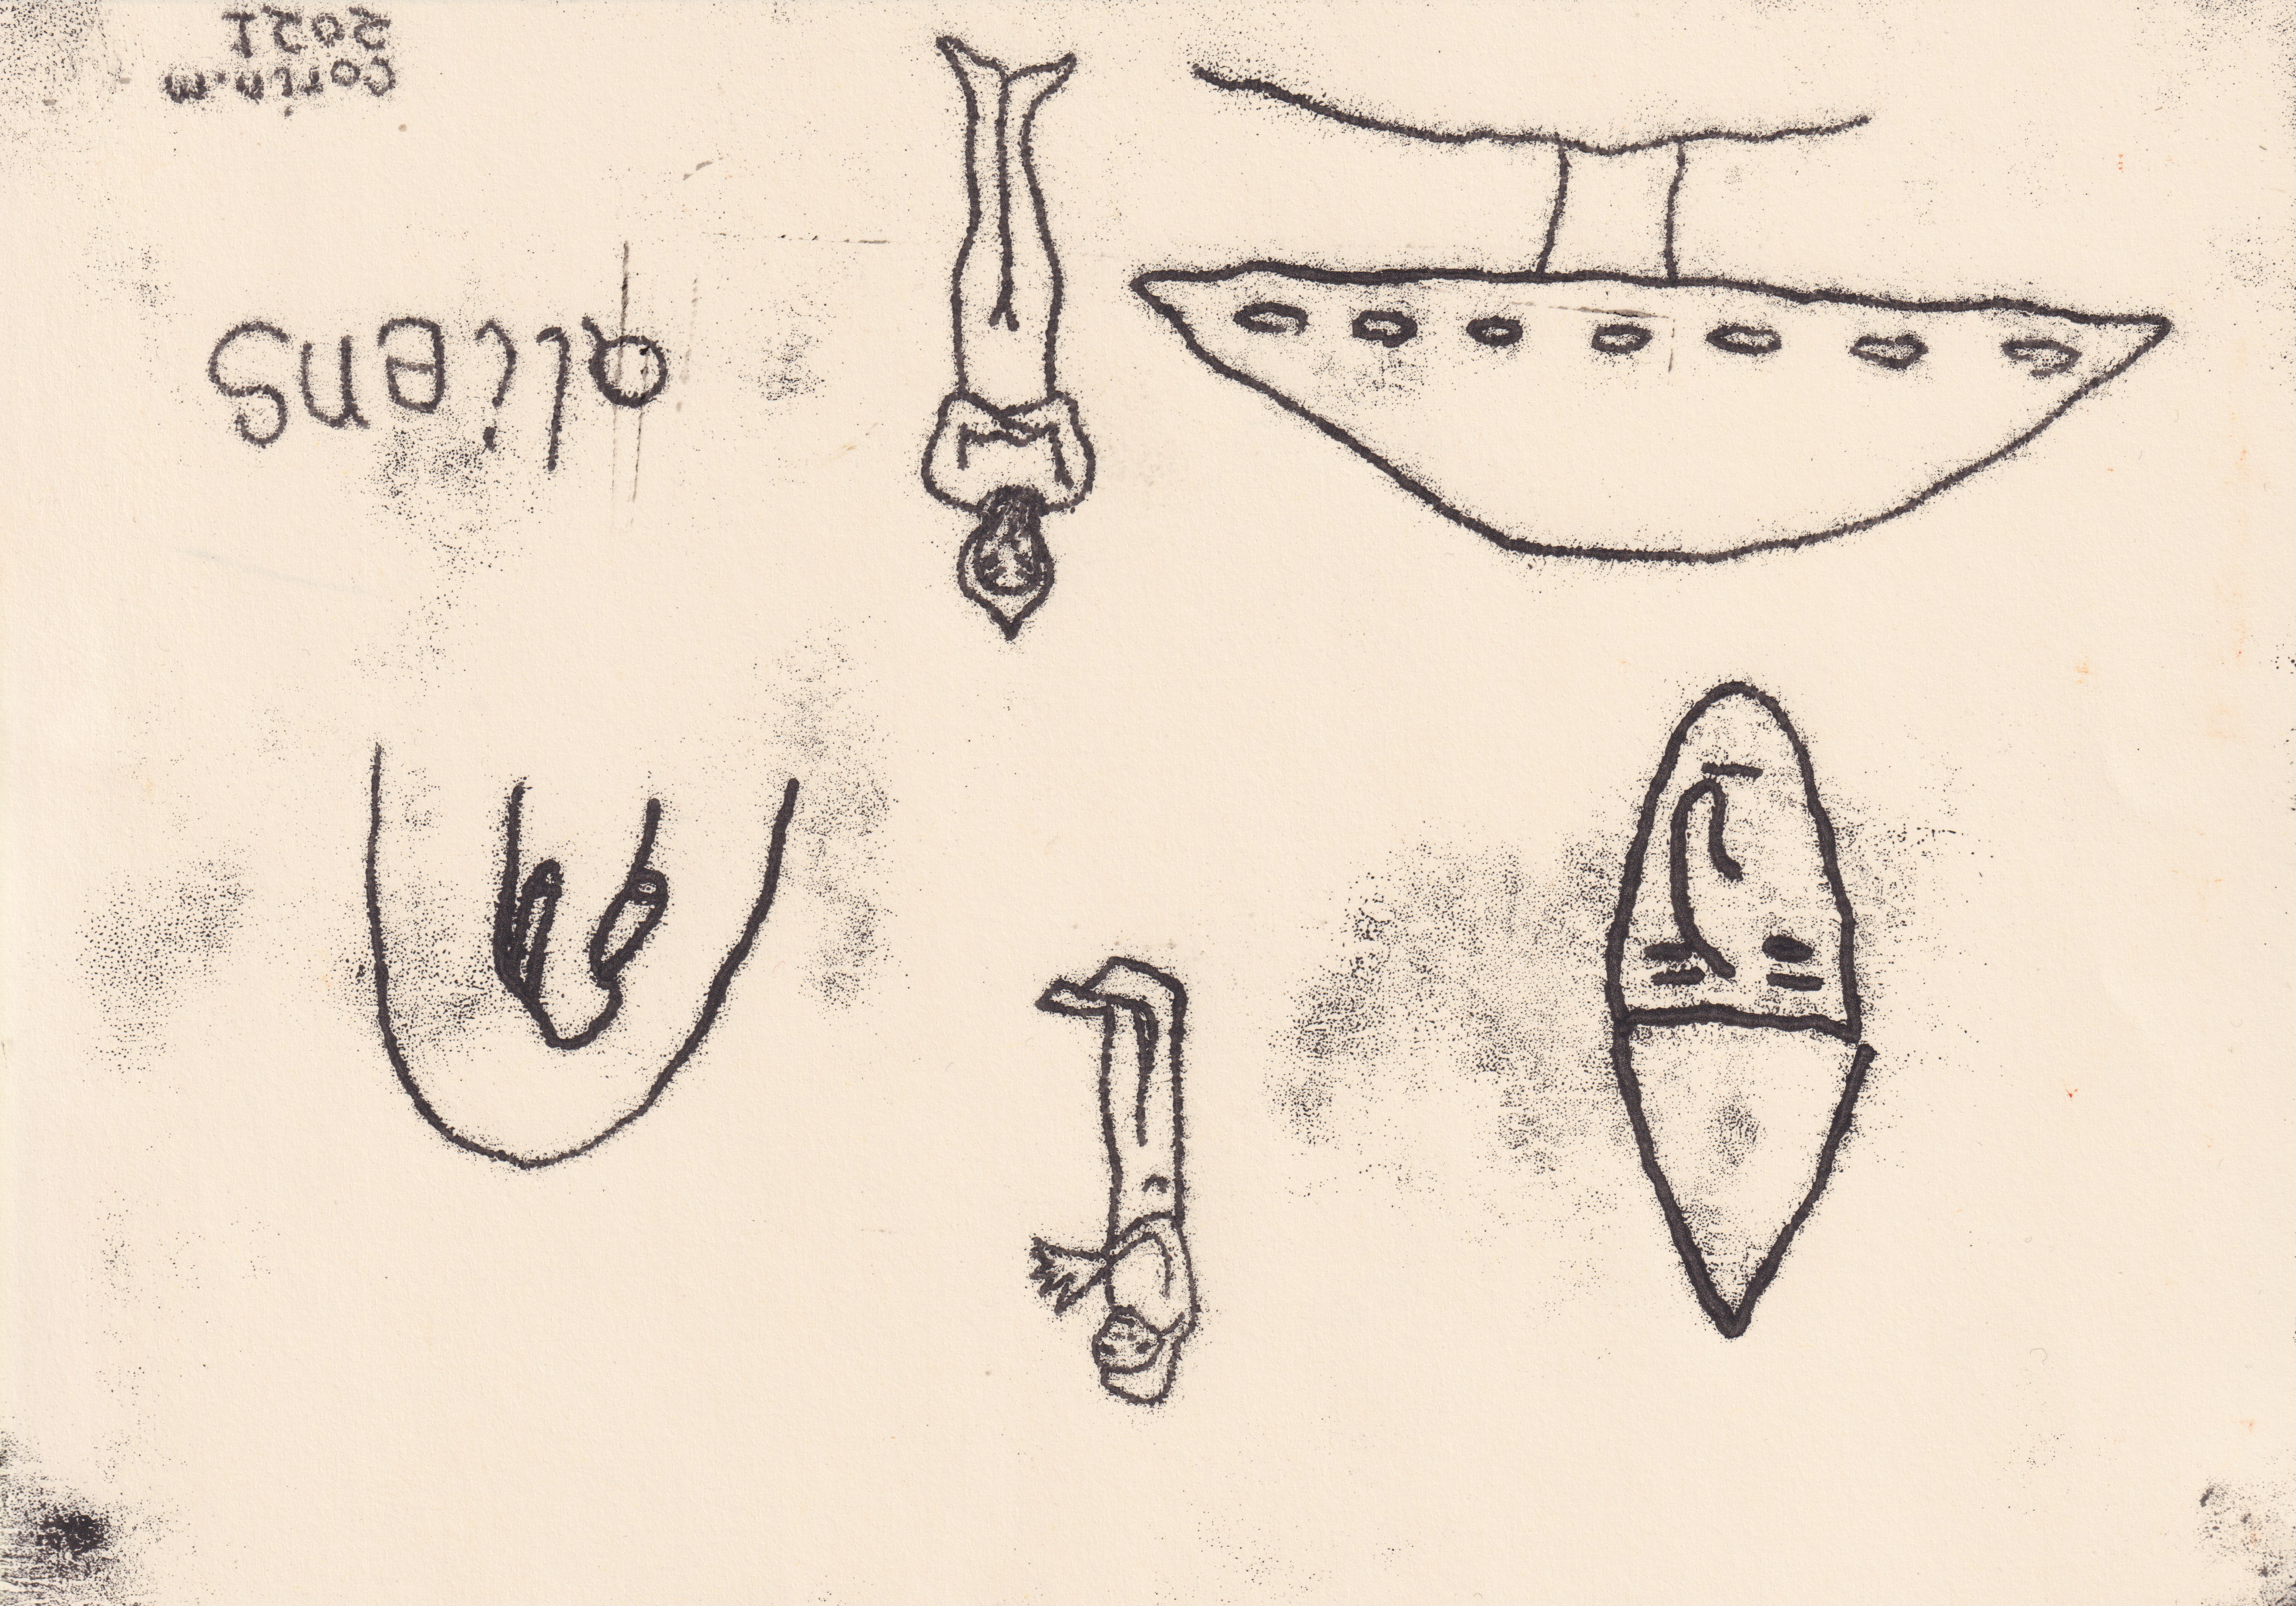 aliens
corin.m
2021